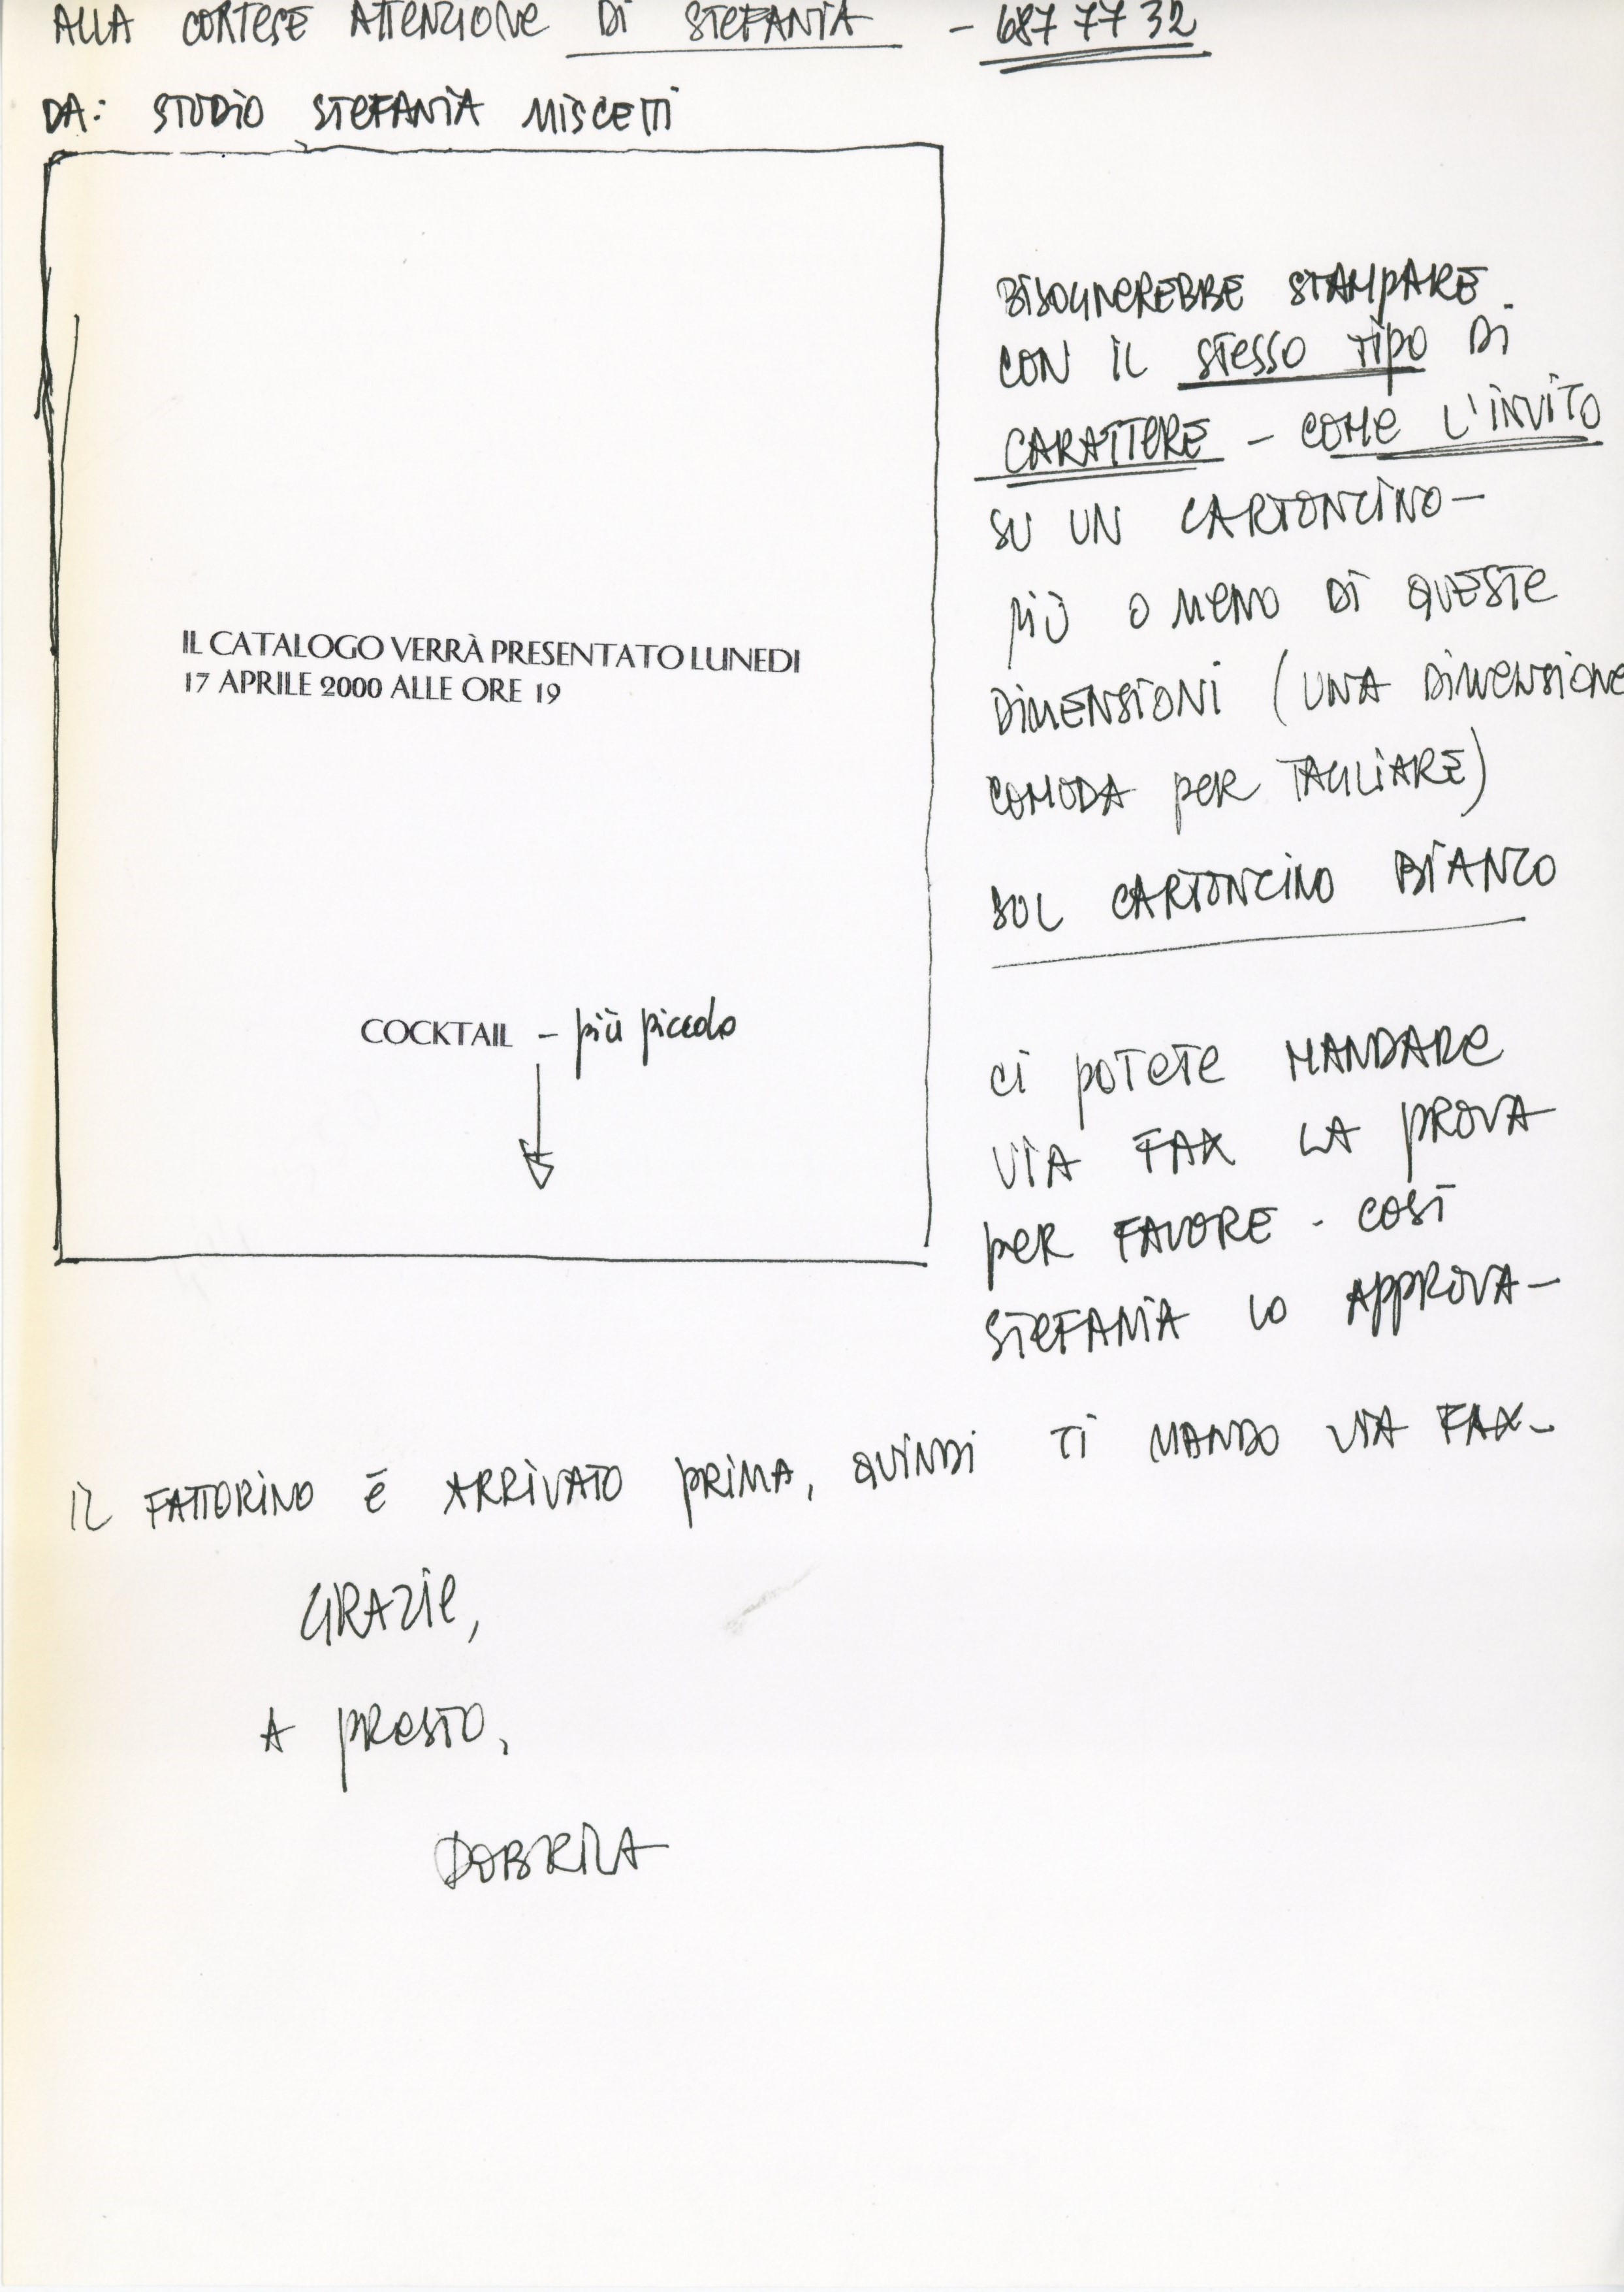 ALLA CORTESE ATTENZIONE DI STEFANIA - 687 77 32
DA: STUDIO STEFANIA MISCETTI
IL CATALOGO VERRÀ PRESENTATO LUNEDI
17 APRILE 2000 ALLE ORE 19
COCKTAIL - più piccolo
BISOGNEREBBE STAMPARE
CON IL STESSO TIPO DI
CARATTERE - COME L'INVITO
SU UN CARTONCINO -
PIÙ O MENO DI QUESTE
DIMENSIONI (UNA DIMENSIONE
COMODA PER TAGLIARE)
SUL CARTONCINO BIANCO
CI POTETE MANDARE
VIA FAX LA PROVA
PER FAVORE - COSÌ
STEFANIA LO APPROVA -
IL FATTORINO È ARRIVATO PRIMA, QUINDI TI MANDO VIA FAX -
GRAZIE,
A PRESTO,
DOBRILA